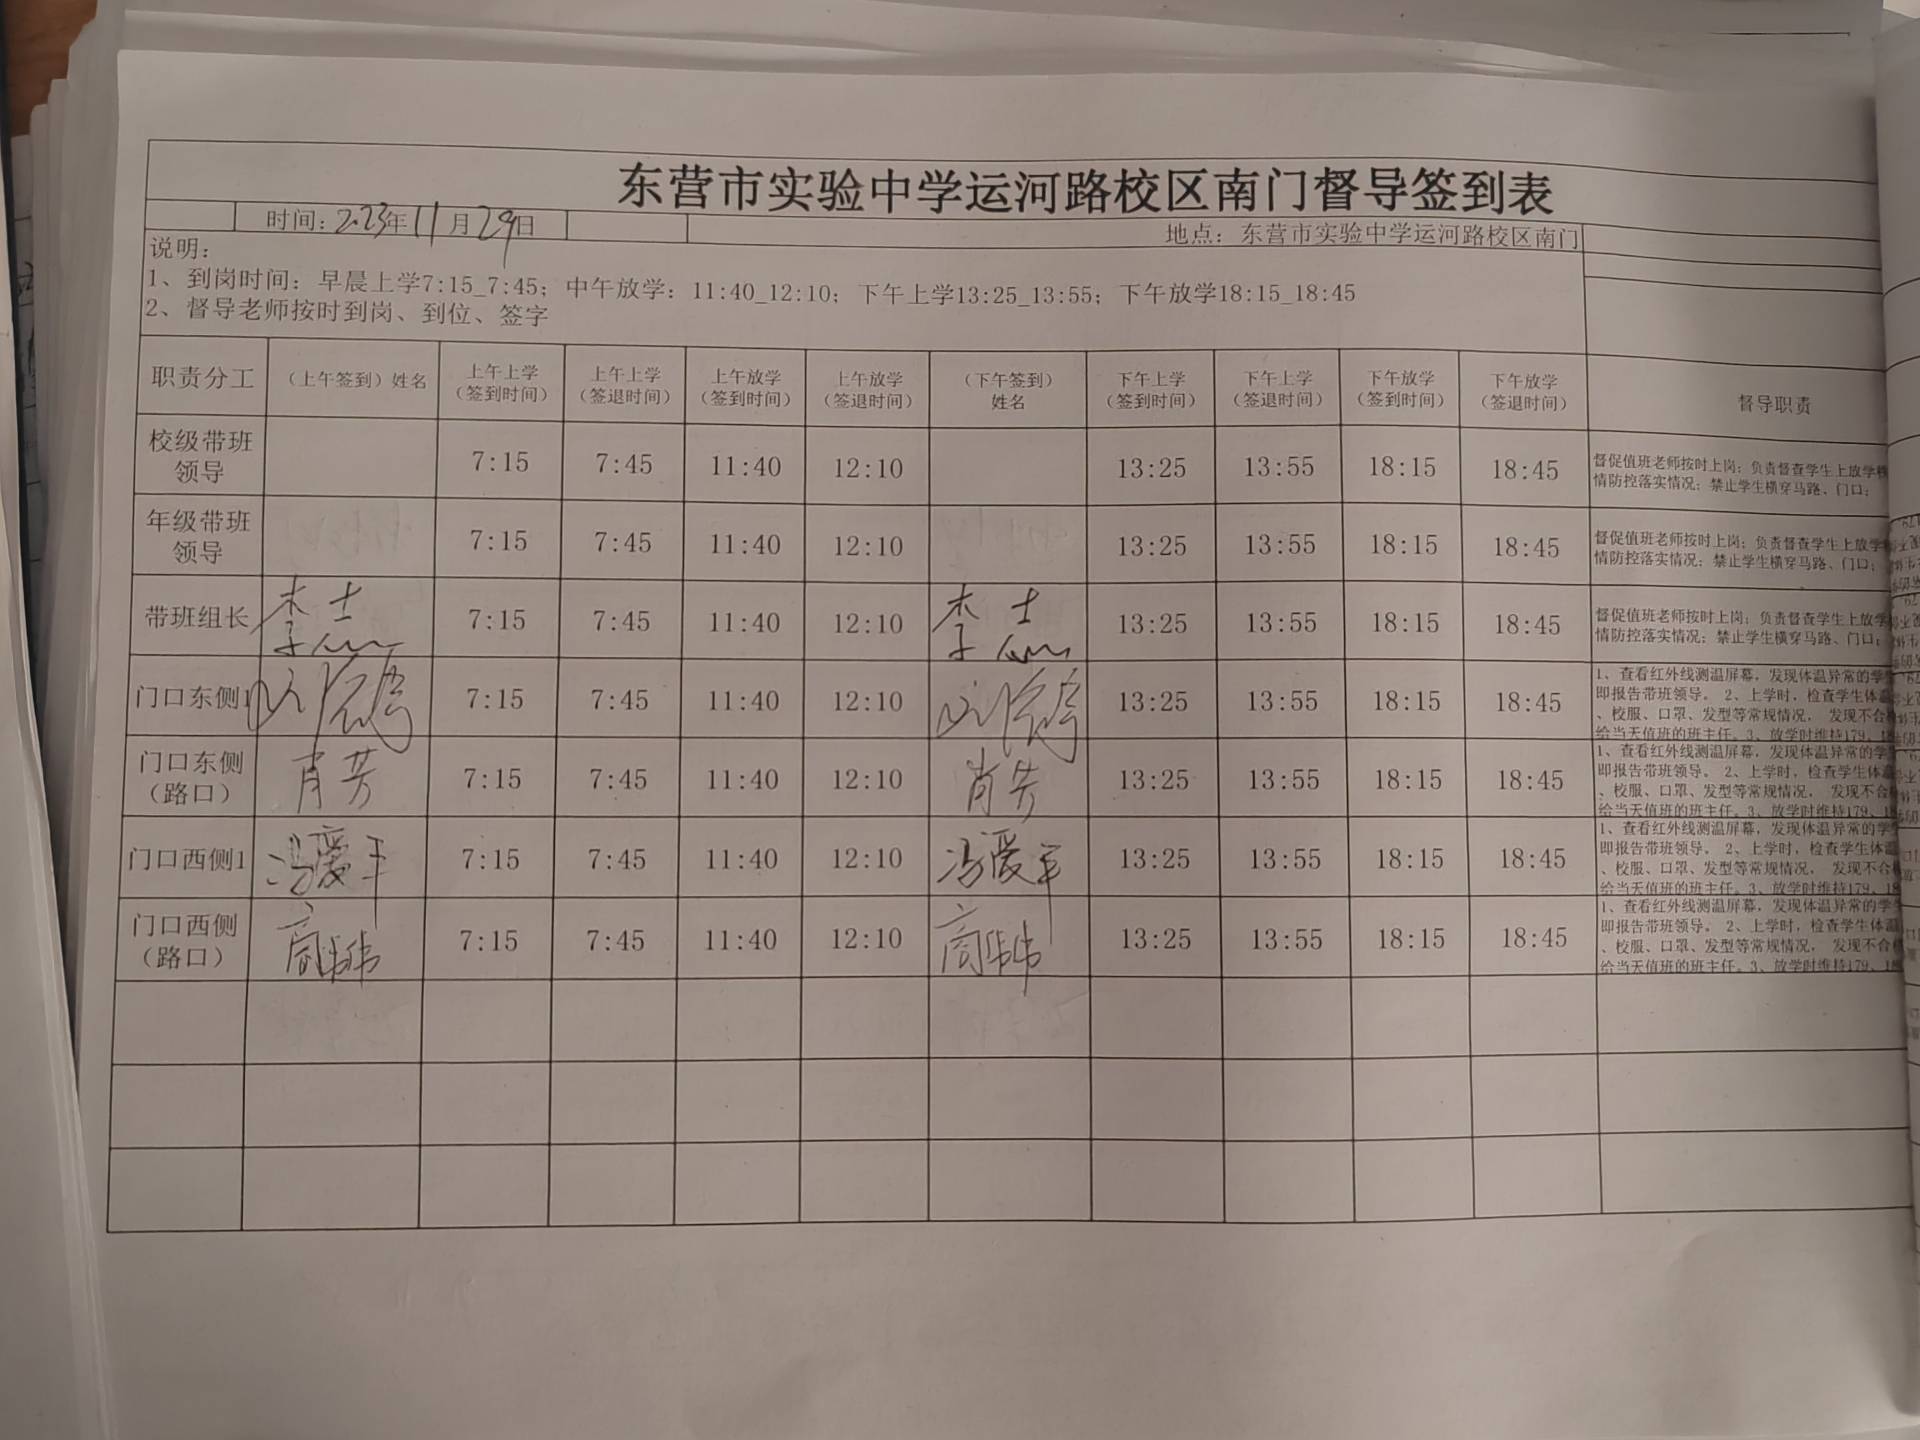 东营市实验中学运河路校区南门督导签到表
时间：2023年11月29日
地点：东营市实验中学运河路校区南门
说明：
1、到岗时间：早晨上学7:15_7:45；中午放学：11:40_12:10；下午上学13:25_13:55；下午放学18:15_18:45
2、督导老师按时到岗、到位、签字
职责分工 （上午签到）姓名 上午上学（签到时间） 上午上学（签退时间） 上午放学（签到时间） 上午放学（签退时间） （下午签到）姓名 下午上学（签到时间） 下午上学（签退时间） 下午放学（签到时间） 下午放学（签退时间） 督导职责
校级带班领导 7:15 7:45 11:40 12:10 13:25 13:55 18:15 18:45
督促值班老师按时上岗；负责督查学生上放学
情防控落实情况；禁止学生横穿马路、门口；
年级带班领导 7:15 7:45 11:40 12:10 13:25 13:55 18:15 18:45
督促值班老师按时上岗；负责督查学生上放学
情防控落实情况；禁止学生横穿马路、门口；
带班组长 李志 7:15 7:45 11:40 12:10 李志 13:25 13:55 18:15 18:45
督促值班老师按时上岗；负责督查学生上放学
情防控落实情况；禁止学生横穿马路、门口；
门口东侧1 7:15 7:45 11:40 12:10 13:25 13:55 18:15 18:45
1、查看红外线测温屏幕，发现体温异常的学
即报告带班领导。 2、上学时，检查学生体温
、校服、口罩、发型等常规情况， 发现不合
给当天值班的班主任。3、放学时维持179、
门口东侧（路口） 肖芳 7:15 7:45 11:40 12:10 肖芳 13:25 13:55 18:15 18:45
1、查看红外线测温屏幕，发现体温异常的学
即报告带班领导。 2、上学时，检查学生体温
、校服、口罩、发型等常规情况， 发现不合
给当天值班的班主任。3、放学时维持179、
门口西侧1 冯爱军 7:15 7:45 11:40 12:10 冯爱军 13:25 13:55 18:15 18:45
1、查看红外线测温屏幕，发现体温异常的学
即报告带班领导。 2、上学时，检查学生体温
、校服、口罩、发型等常规情况， 发现不合
给当天值班的班主任。3、放学时维持179、
门口西侧（路口） 商伟伟 7:15 7:45 11:40 12:10 商伟伟 13:25 13:55 18:15 18:45
1、查看红外线测温屏幕，发现体温异常的学
即报告带班领导。 2、上学时，检查学生体温
、校服、口罩、发型等常规情况， 发现不合
给当天值班的班主任。3、放学时维持179、